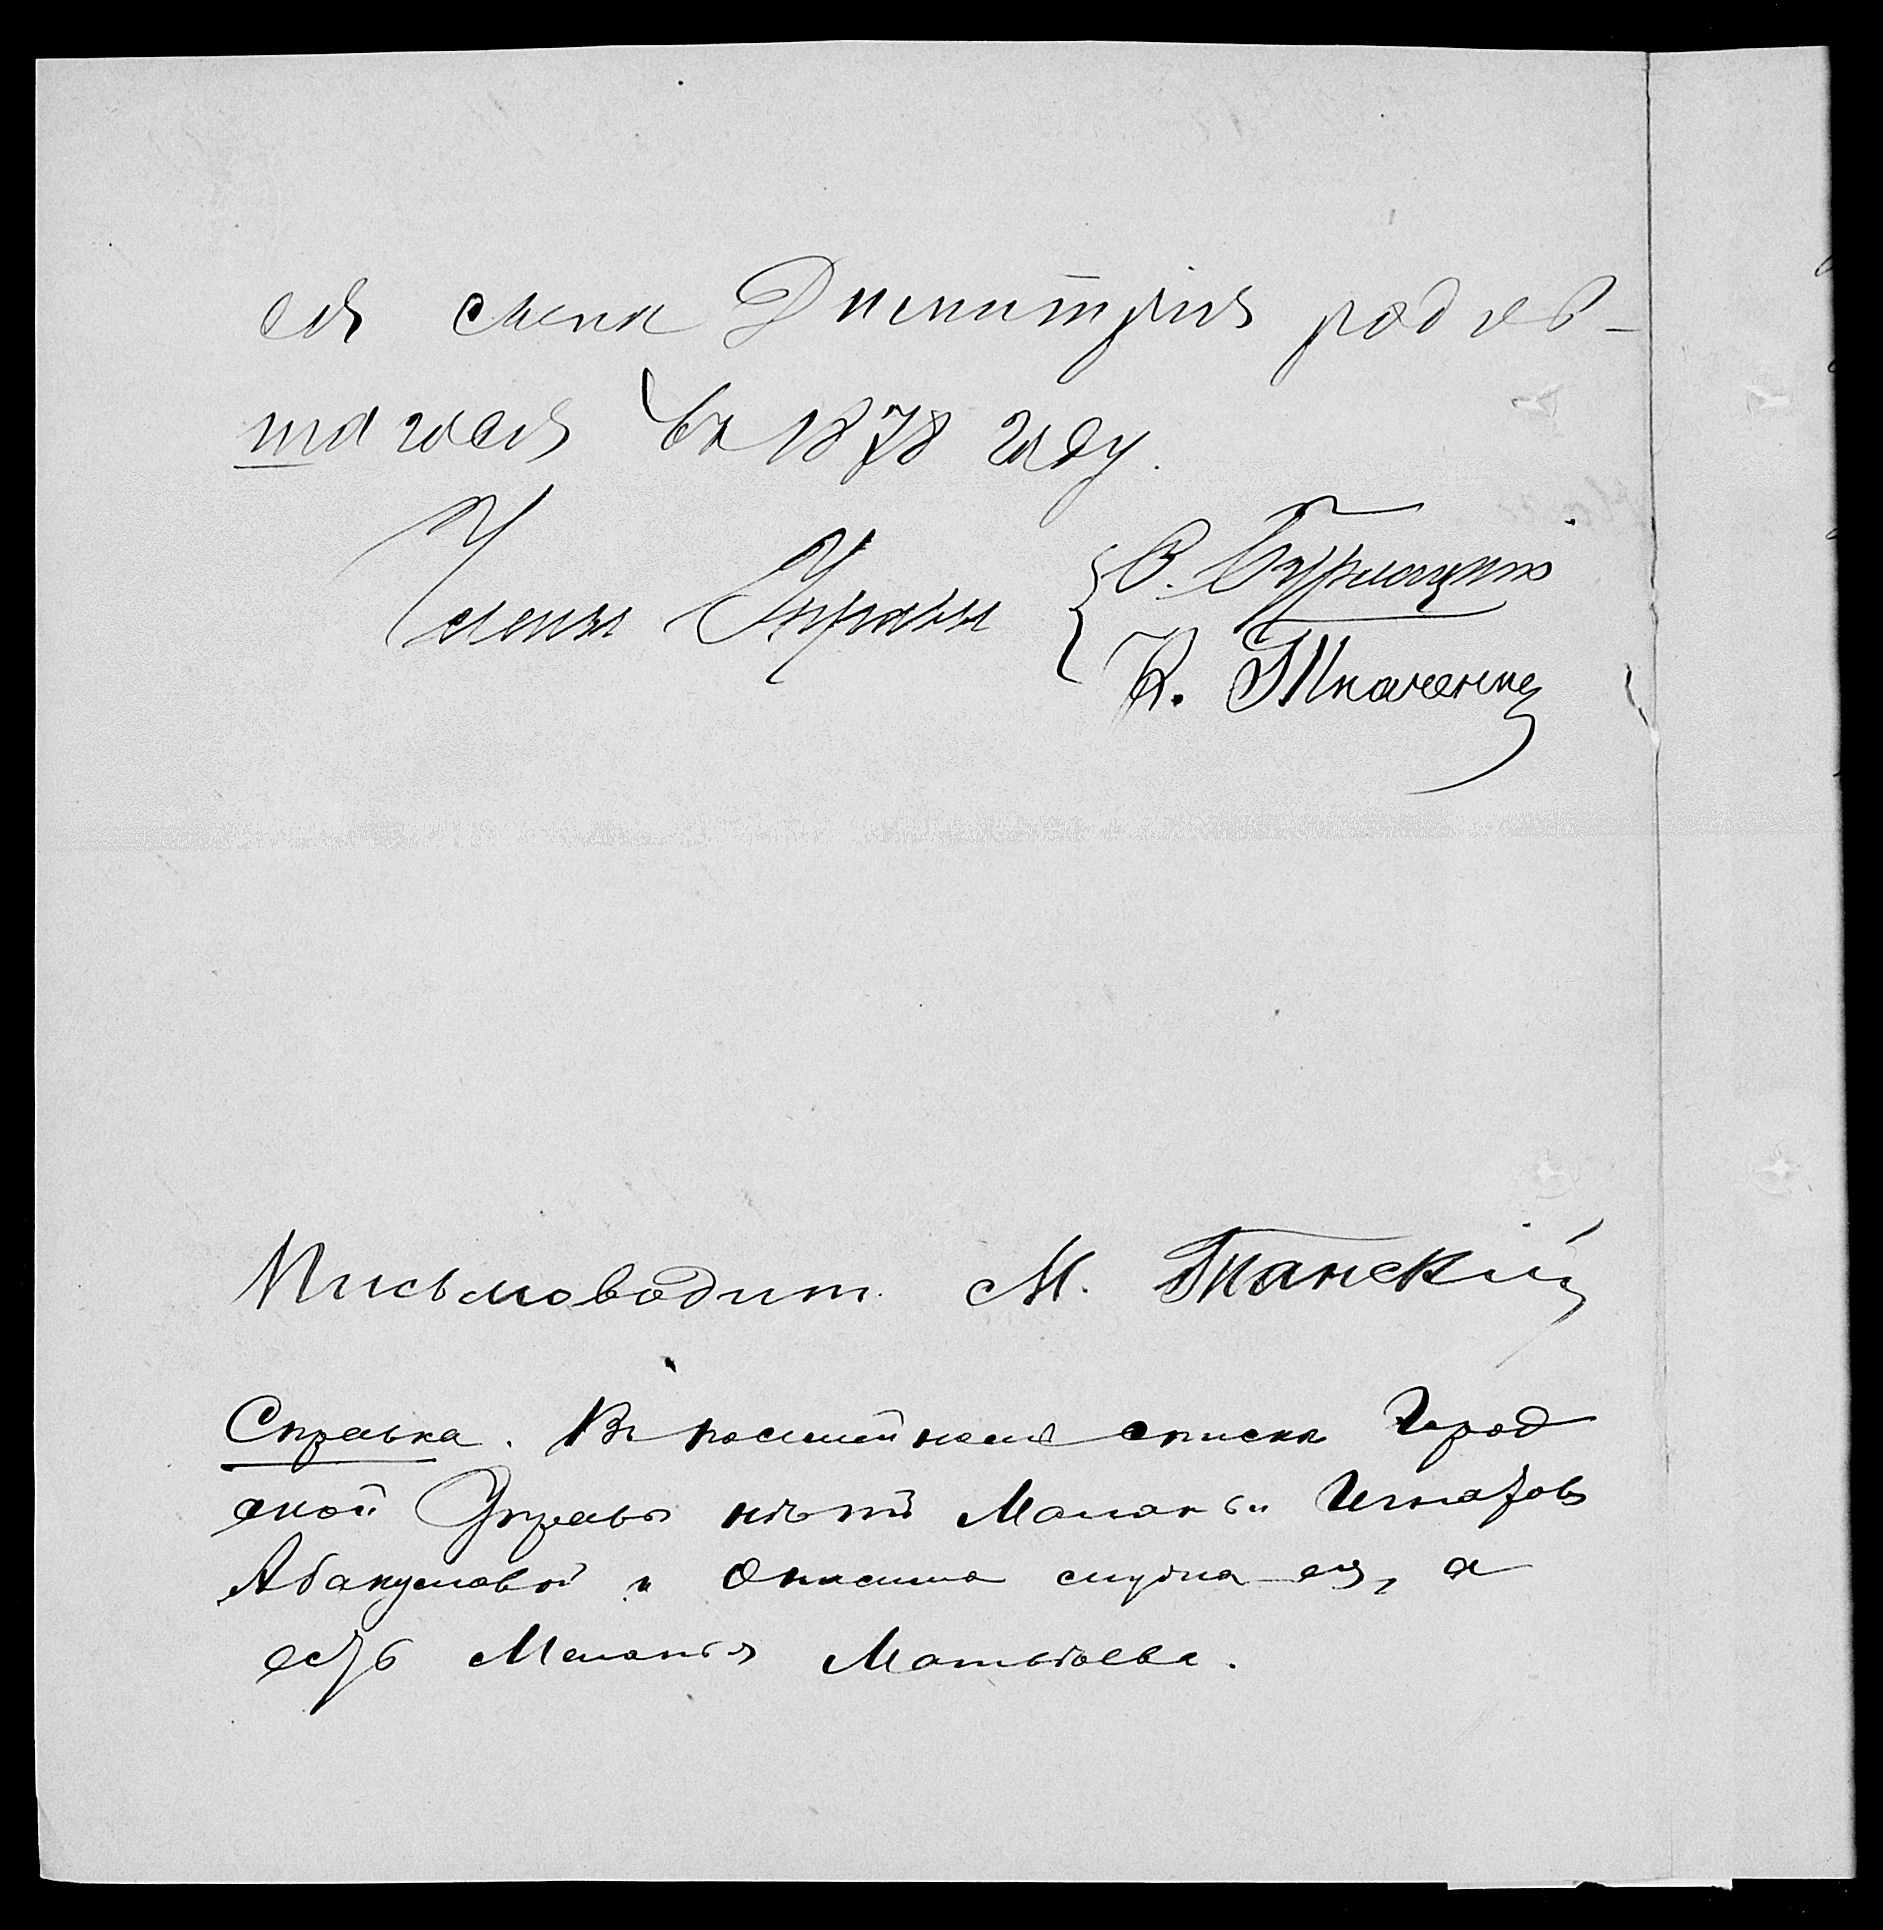 ея сына Димитрія родив-
шагося въ 1878 году.
Члены Управы
В. Бурлацкій
К. Ткаченко
Письмоводит. М. Тканскій
Справка. Въ посемейномъ списке Город
ской Управы нѣтъ Маланьи Игнатов
Абакумовой и Онисима ея, а
есть Меланья Матвѣева.